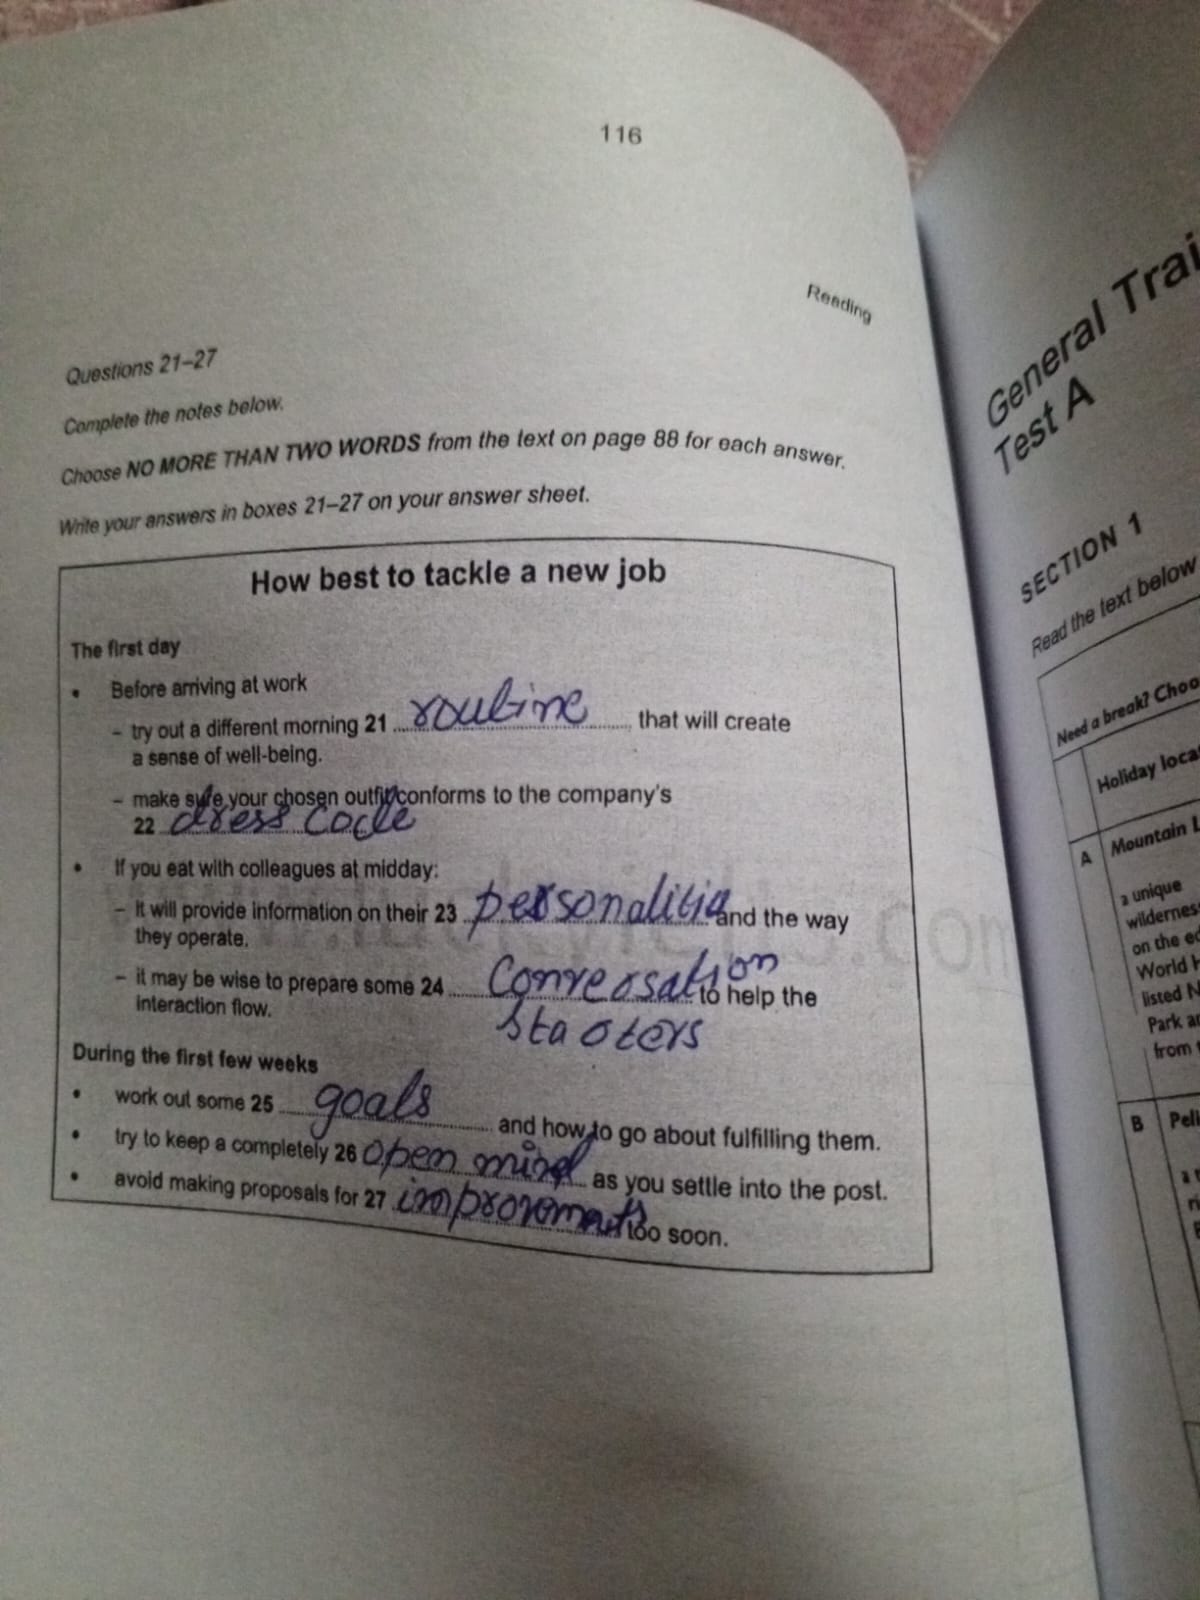 116
Reading
Questions 21–27
Complete the notes below.
Choose NO MORE THAN TWO WORDS from the text on page 88 for each answer.
Write your answers in boxes 21–27 on your answer sheet.
How best to tackle a new job
The first day
• Before arriving at work
– try out a different morning 21 routine that will create
a sense of well-being.
– make sure your chosen outfit conforms to the company's
22 dress code
• If you eat with colleagues at midday:
– it will provide information on their 23 personalitie and the way
they operate.
– it may be wise to prepare some 24 Conversation to help the
starters
interaction flow.
During the first few weeks
• work out some 25 goals and how to go about fulfilling them.
• try to keep a completely 26 open mind as you settle into the post.
• avoid making proposals for 27 improvements too soon.
General Trai
Test A
SECTION 1
Read the text below
Need a break? Choo
Holiday loca
A Mountain L
a unique
wildernes
on the ed
World H
listed N
Park a
from
B Peli